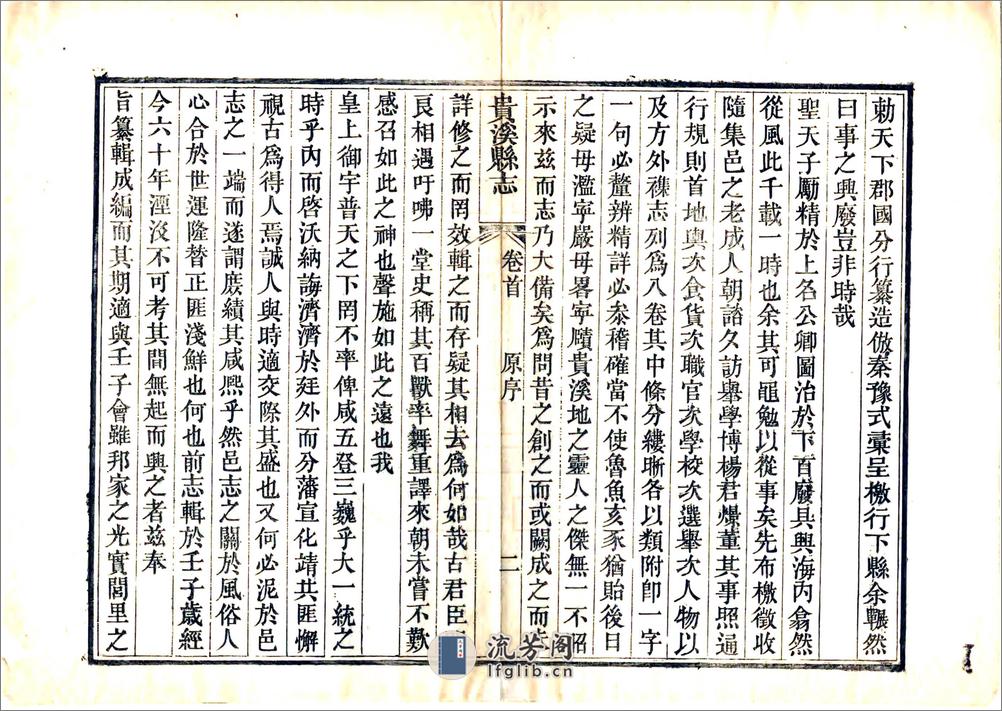 勅天下郡國分行纂造倣秦豫式彙呈檄行下縣余冁然
曰事之興廢豈非時哉
聖天子勵精於上名公卿圖治於下百廢具興海内翕然
從風此千載一時也余其可黽勉以從事矣先布檄徵收
隨集邑之老成人朝諮夕訪舉學博楊君爌董其事照通
行規則首地輿次食貨次職官次學校次選舉次人物以
及方外襍志列爲八卷其中條分縷晰各以類附卽一字
一句必釐辨精詳必叅稽確當不使魯魚亥豕猶貽後日
之疑毋濫寧嚴毋畧寧贖貴溪地之靈人之傑無一不昭
示來兹而志乃大備矣爲問昔之創之而或闕成之而
貴溪縣志 卷首 原序 二
詳修之而罔效輯之而存疑其相去爲何如哉古君臣
良相遇吁咈一堂史稱其百獸率舞重譯來朝未嘗不歎
感召如此之神也聲施如此之遠也我
皇上御宇普天之下罔不率俾咸五登三巍乎大一統之
時乎内而啓沃納誨濟濟於廷外而分藩宣化靖共匪懈
視古爲得人焉誠人與時適交際其盛也又何必泥於邑
志之一端而遂謂庶績其咸熙乎然邑志之關於風俗人
心合於世運隆替正匪淺鮮也何也前志輯於壬子歲經
今六十年湮没不可考其間無起而興之者兹奉
旨纂輯成編而其期適與壬子會雖邦家之光實閭里之
流芳阁
lfglib.com